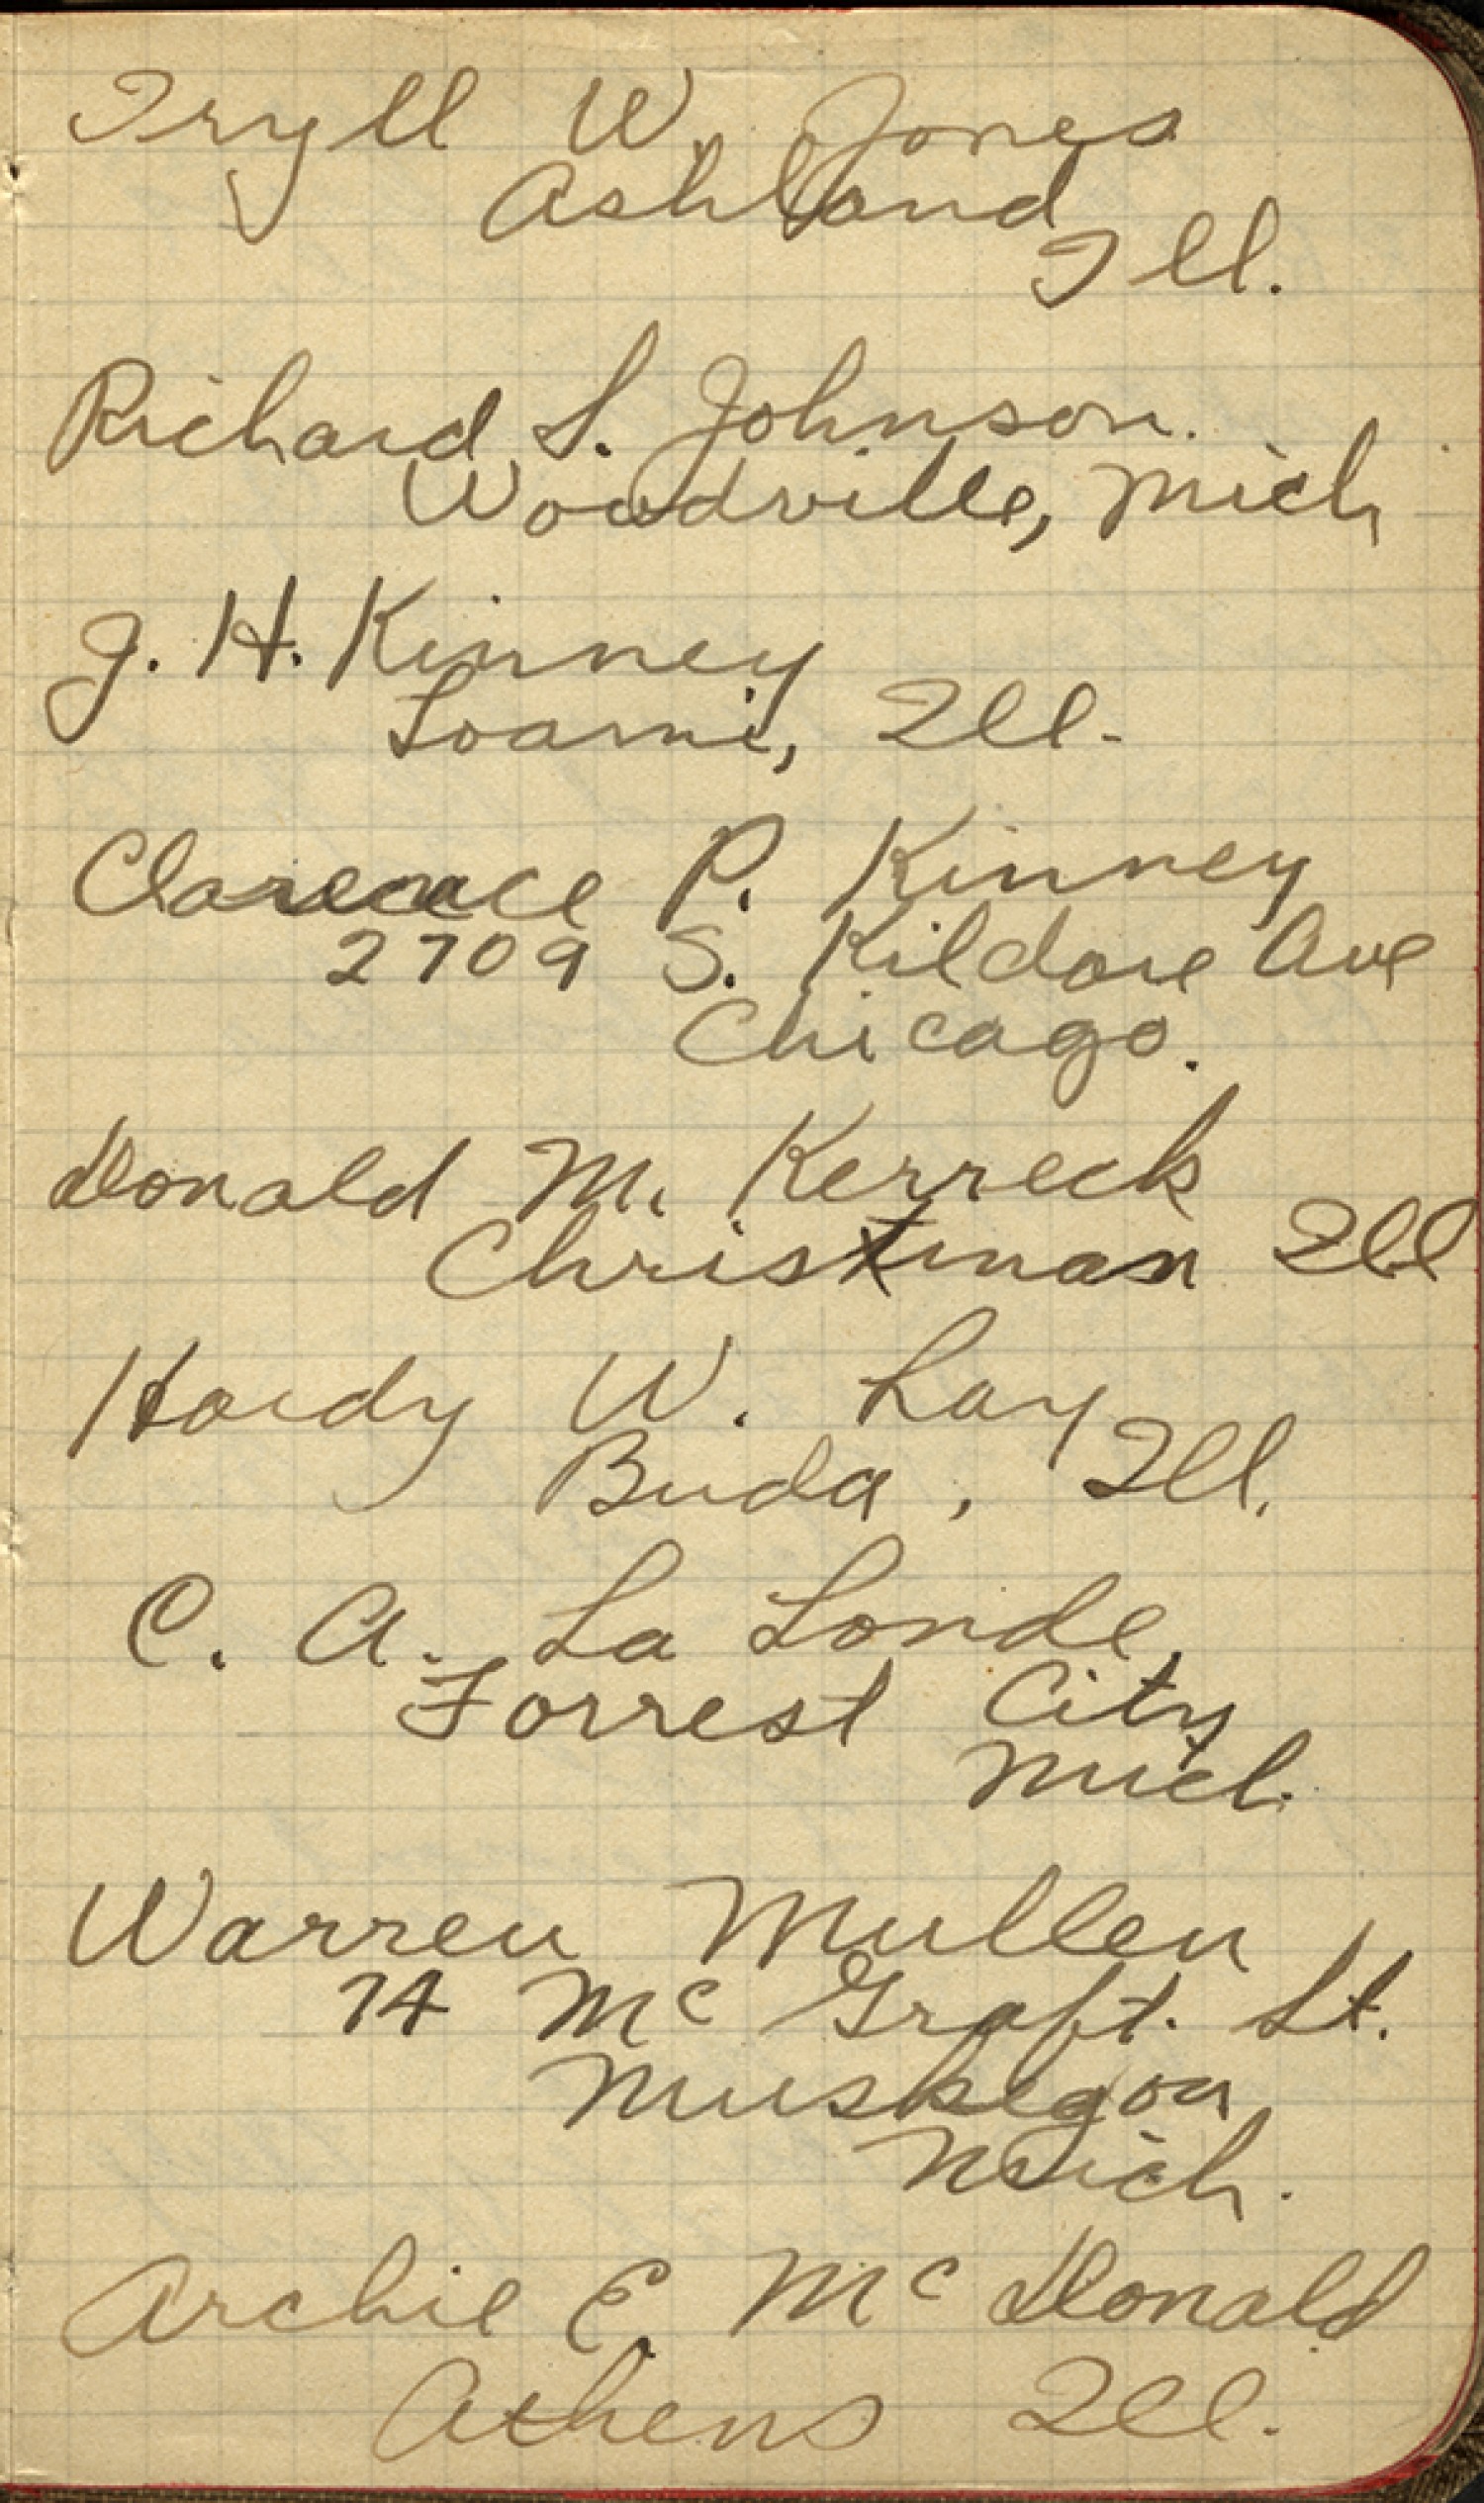 Iryll W. Jones
Ashland
Ill.
Richard S. Johnson.
Woodville, Mich
J. H. Kinney
Loami, Ill.
Clarence P. Kinney
2709 S. Kildare Ave
Chicago.
Donald M. Kerreck
Christman Ill
Hardy W. Lay
Buda, Ill.
C. A. La Londe
Forrest City
Mich.
Warren Mullen
74 Mc Graft. St.
Muskegon
Mich.
Archie E. Mc Donald
Athens Ill.